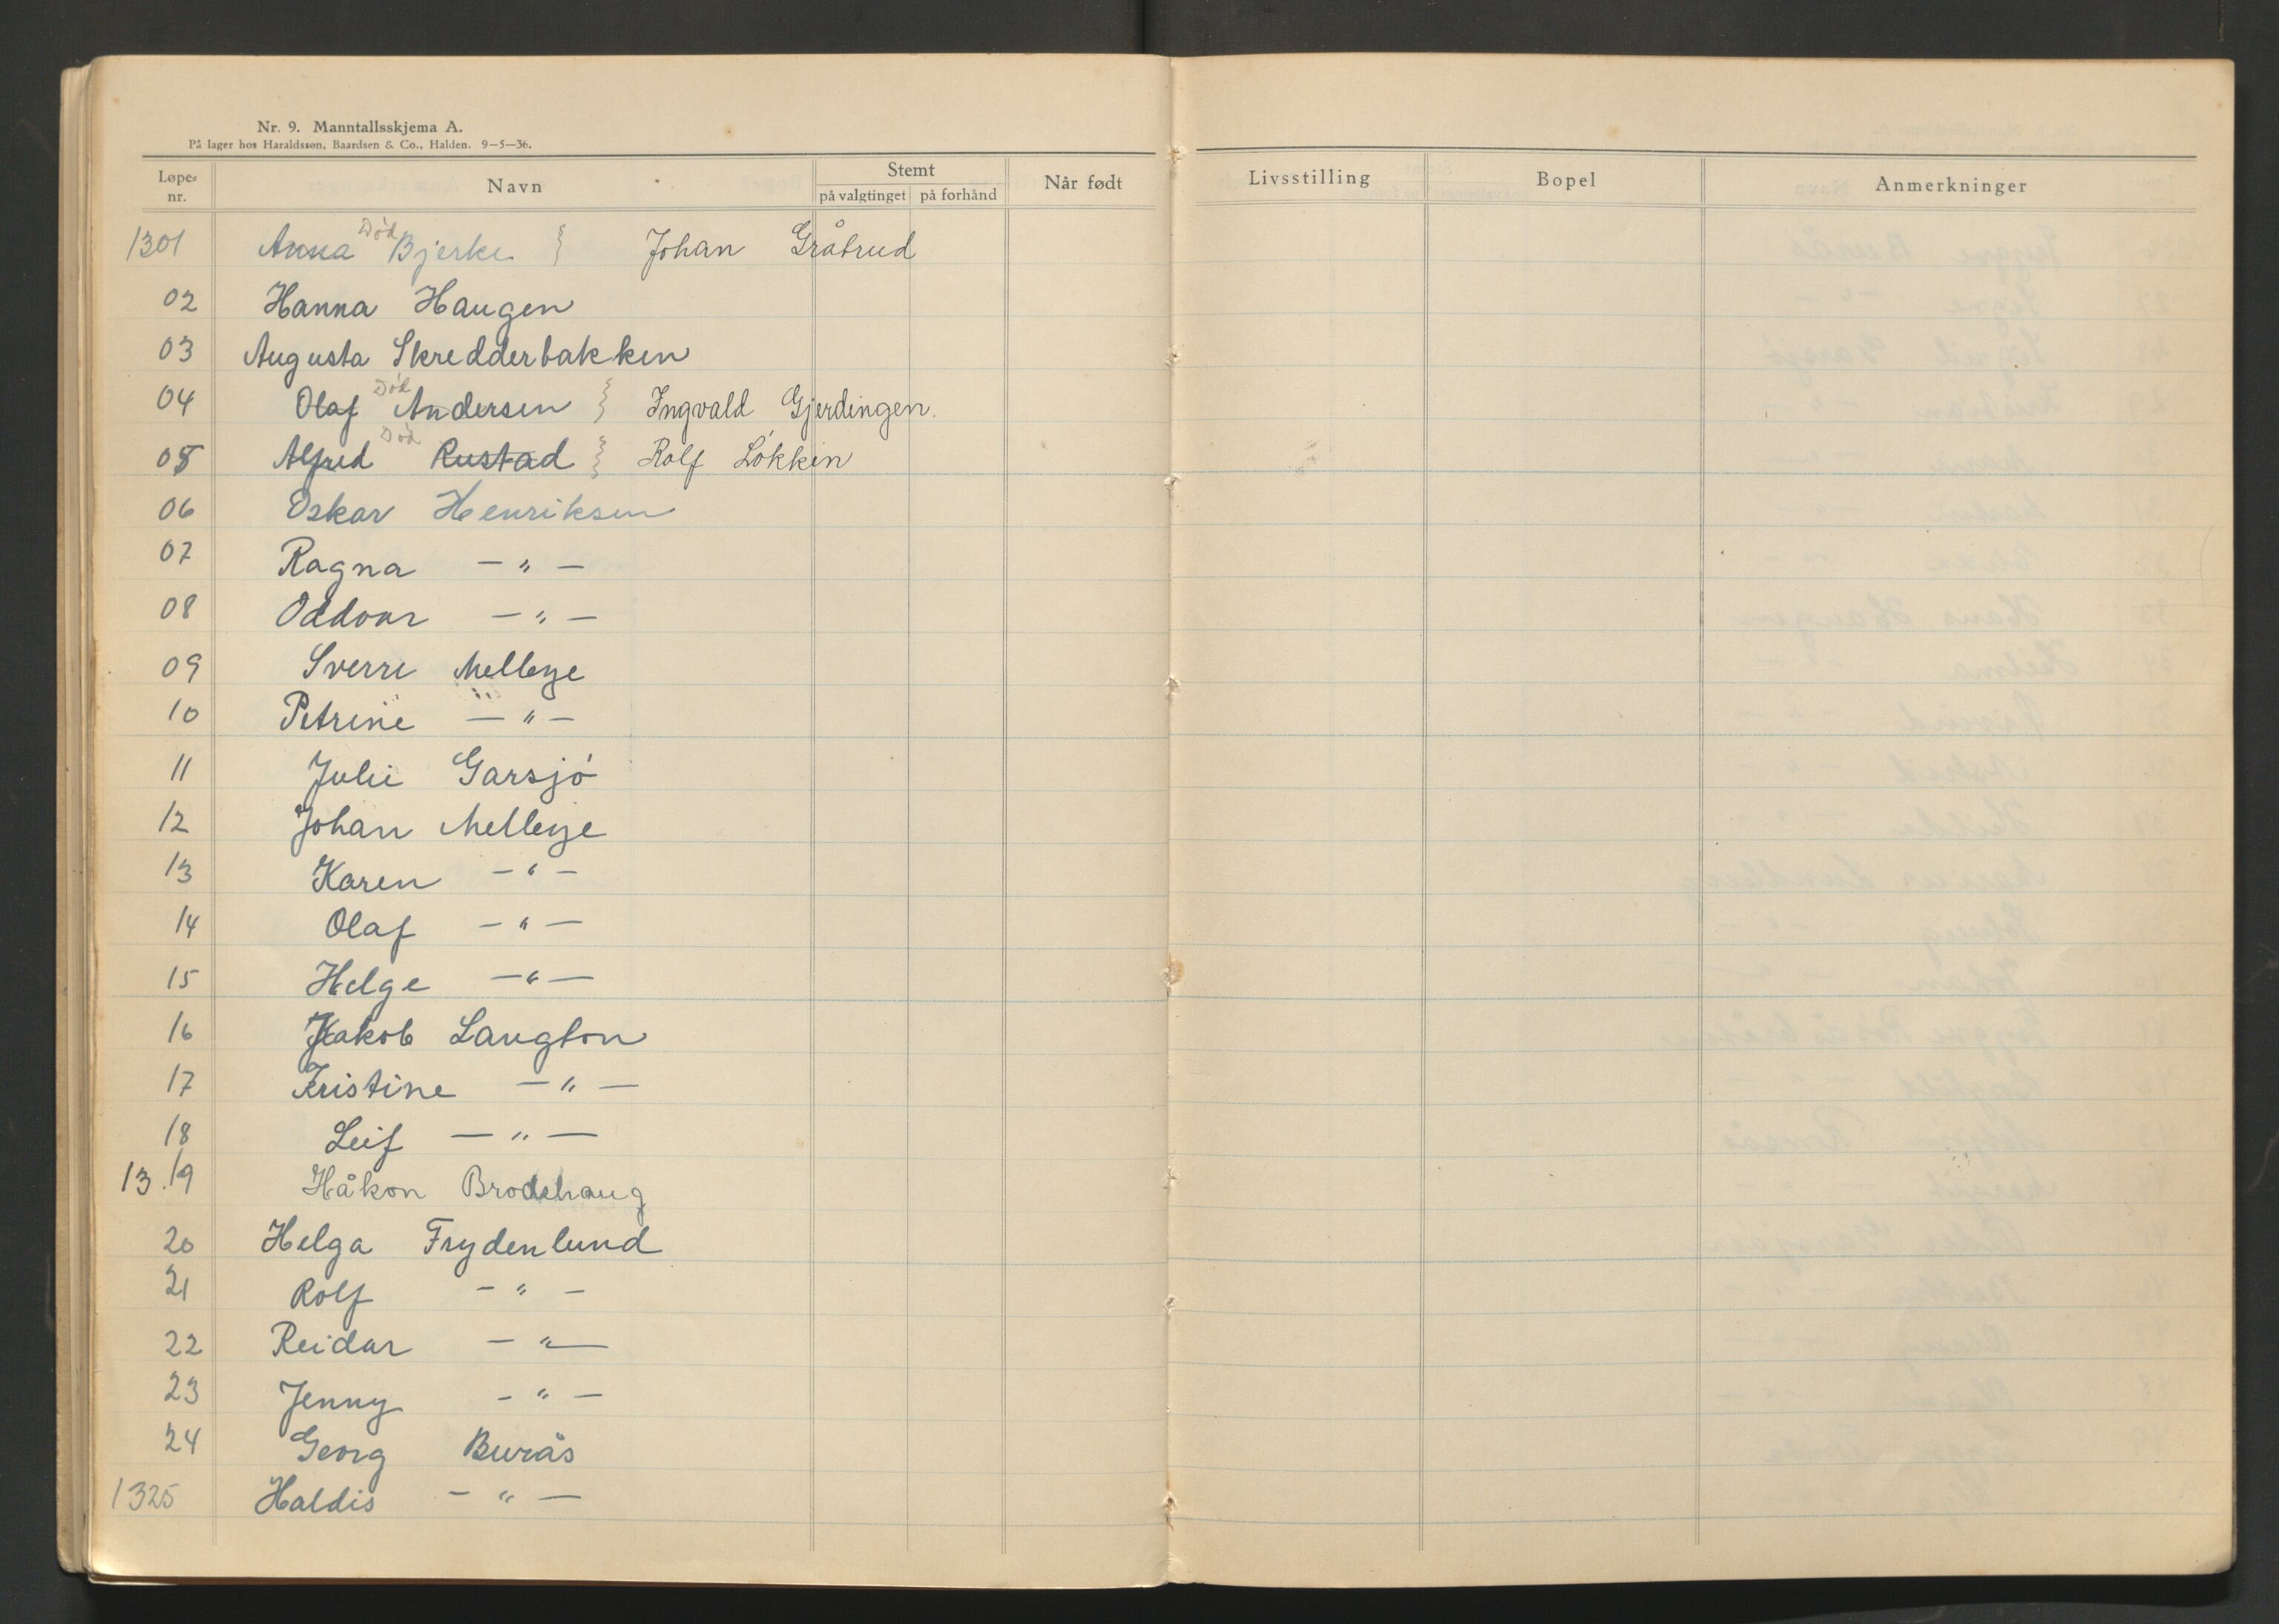 Nr. 9. Manntallsskjema A.
På lager hos Haraldssøn, Baardsen & Co., Halden. 9—5—36.
Løpe-nr. Navn Stemt på valgtinget på forhånd Når født Livsstilling Bopel Anmerkninger
1301 Anna Død Bjerke } Johan Gråbrud
02 Hanna Haugen
03 Augusta Skredderbakken
04 Olaf Død Andersen } Ingvald Gjerdingen.
05 Alfred Død Rustad } Rolf Løkken
06 Oskar Henriksen
07 Ragna — " —
08 Oddvar — " —
09 Sverre Melleye
10 Petrine — " —
11 Julie Garsjø
12 Johan Melleye
13 Karen — " —
14 Olaf — " —
15 Helge — " —
16 Jakob Langton
17 Kristine — " —
18 Leif — " —
13.19 Håkon Brodehaug
20 Helga Frydenlund
21 Rolf — " —
22 Reidar — " —
23 Jenny — " —
24 Georg Burås
1325 Haldis — " —